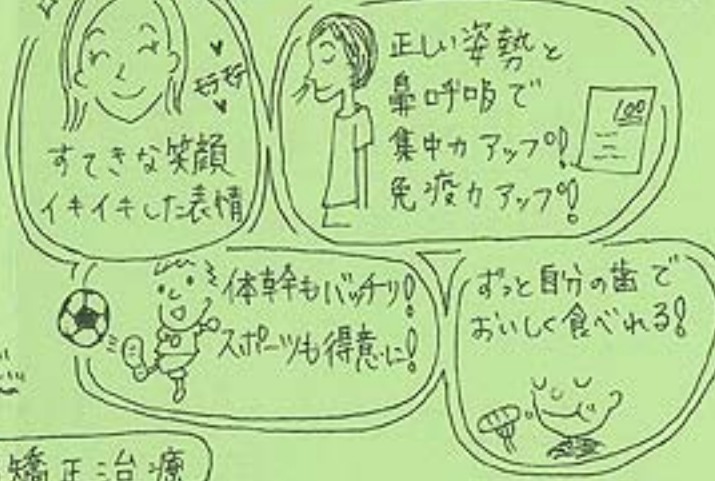 モテモテ
すてきな笑顔
イキイキした表情
正しい姿勢と
鼻呼吸で
集中力アップ!
免疫力アップ!
100
体幹もバッチリ!
スポーツも得意に!
ずっと自分の歯で
おいしく食べれる!
矯正治療